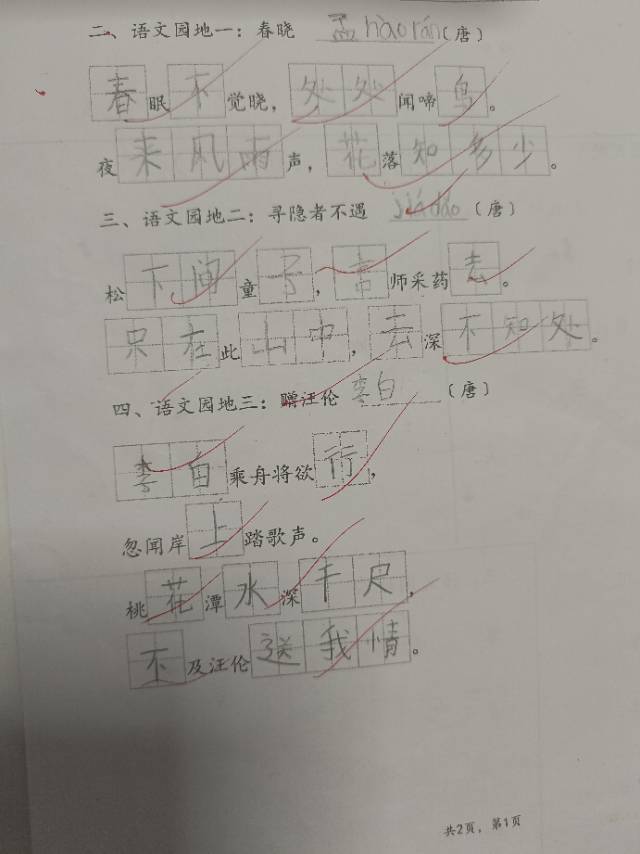 二、语文园地一：春晓 孟hào rán（唐）
春眠不觉晓，处处闻啼鸟。
夜来风雨声，花落知多少。
三、语文园地二：寻隐者不遇 jiǎ dǎo（唐）
松下问童子，言师采药去。
只在此山中，云深不知处。
四、语文园地三：赠汪伦 李白（唐）
李白乘舟将欲行，
忽闻岸上踏歌声。
桃花潭水深千尺，
不及汪伦送我情。
共2页，第1页